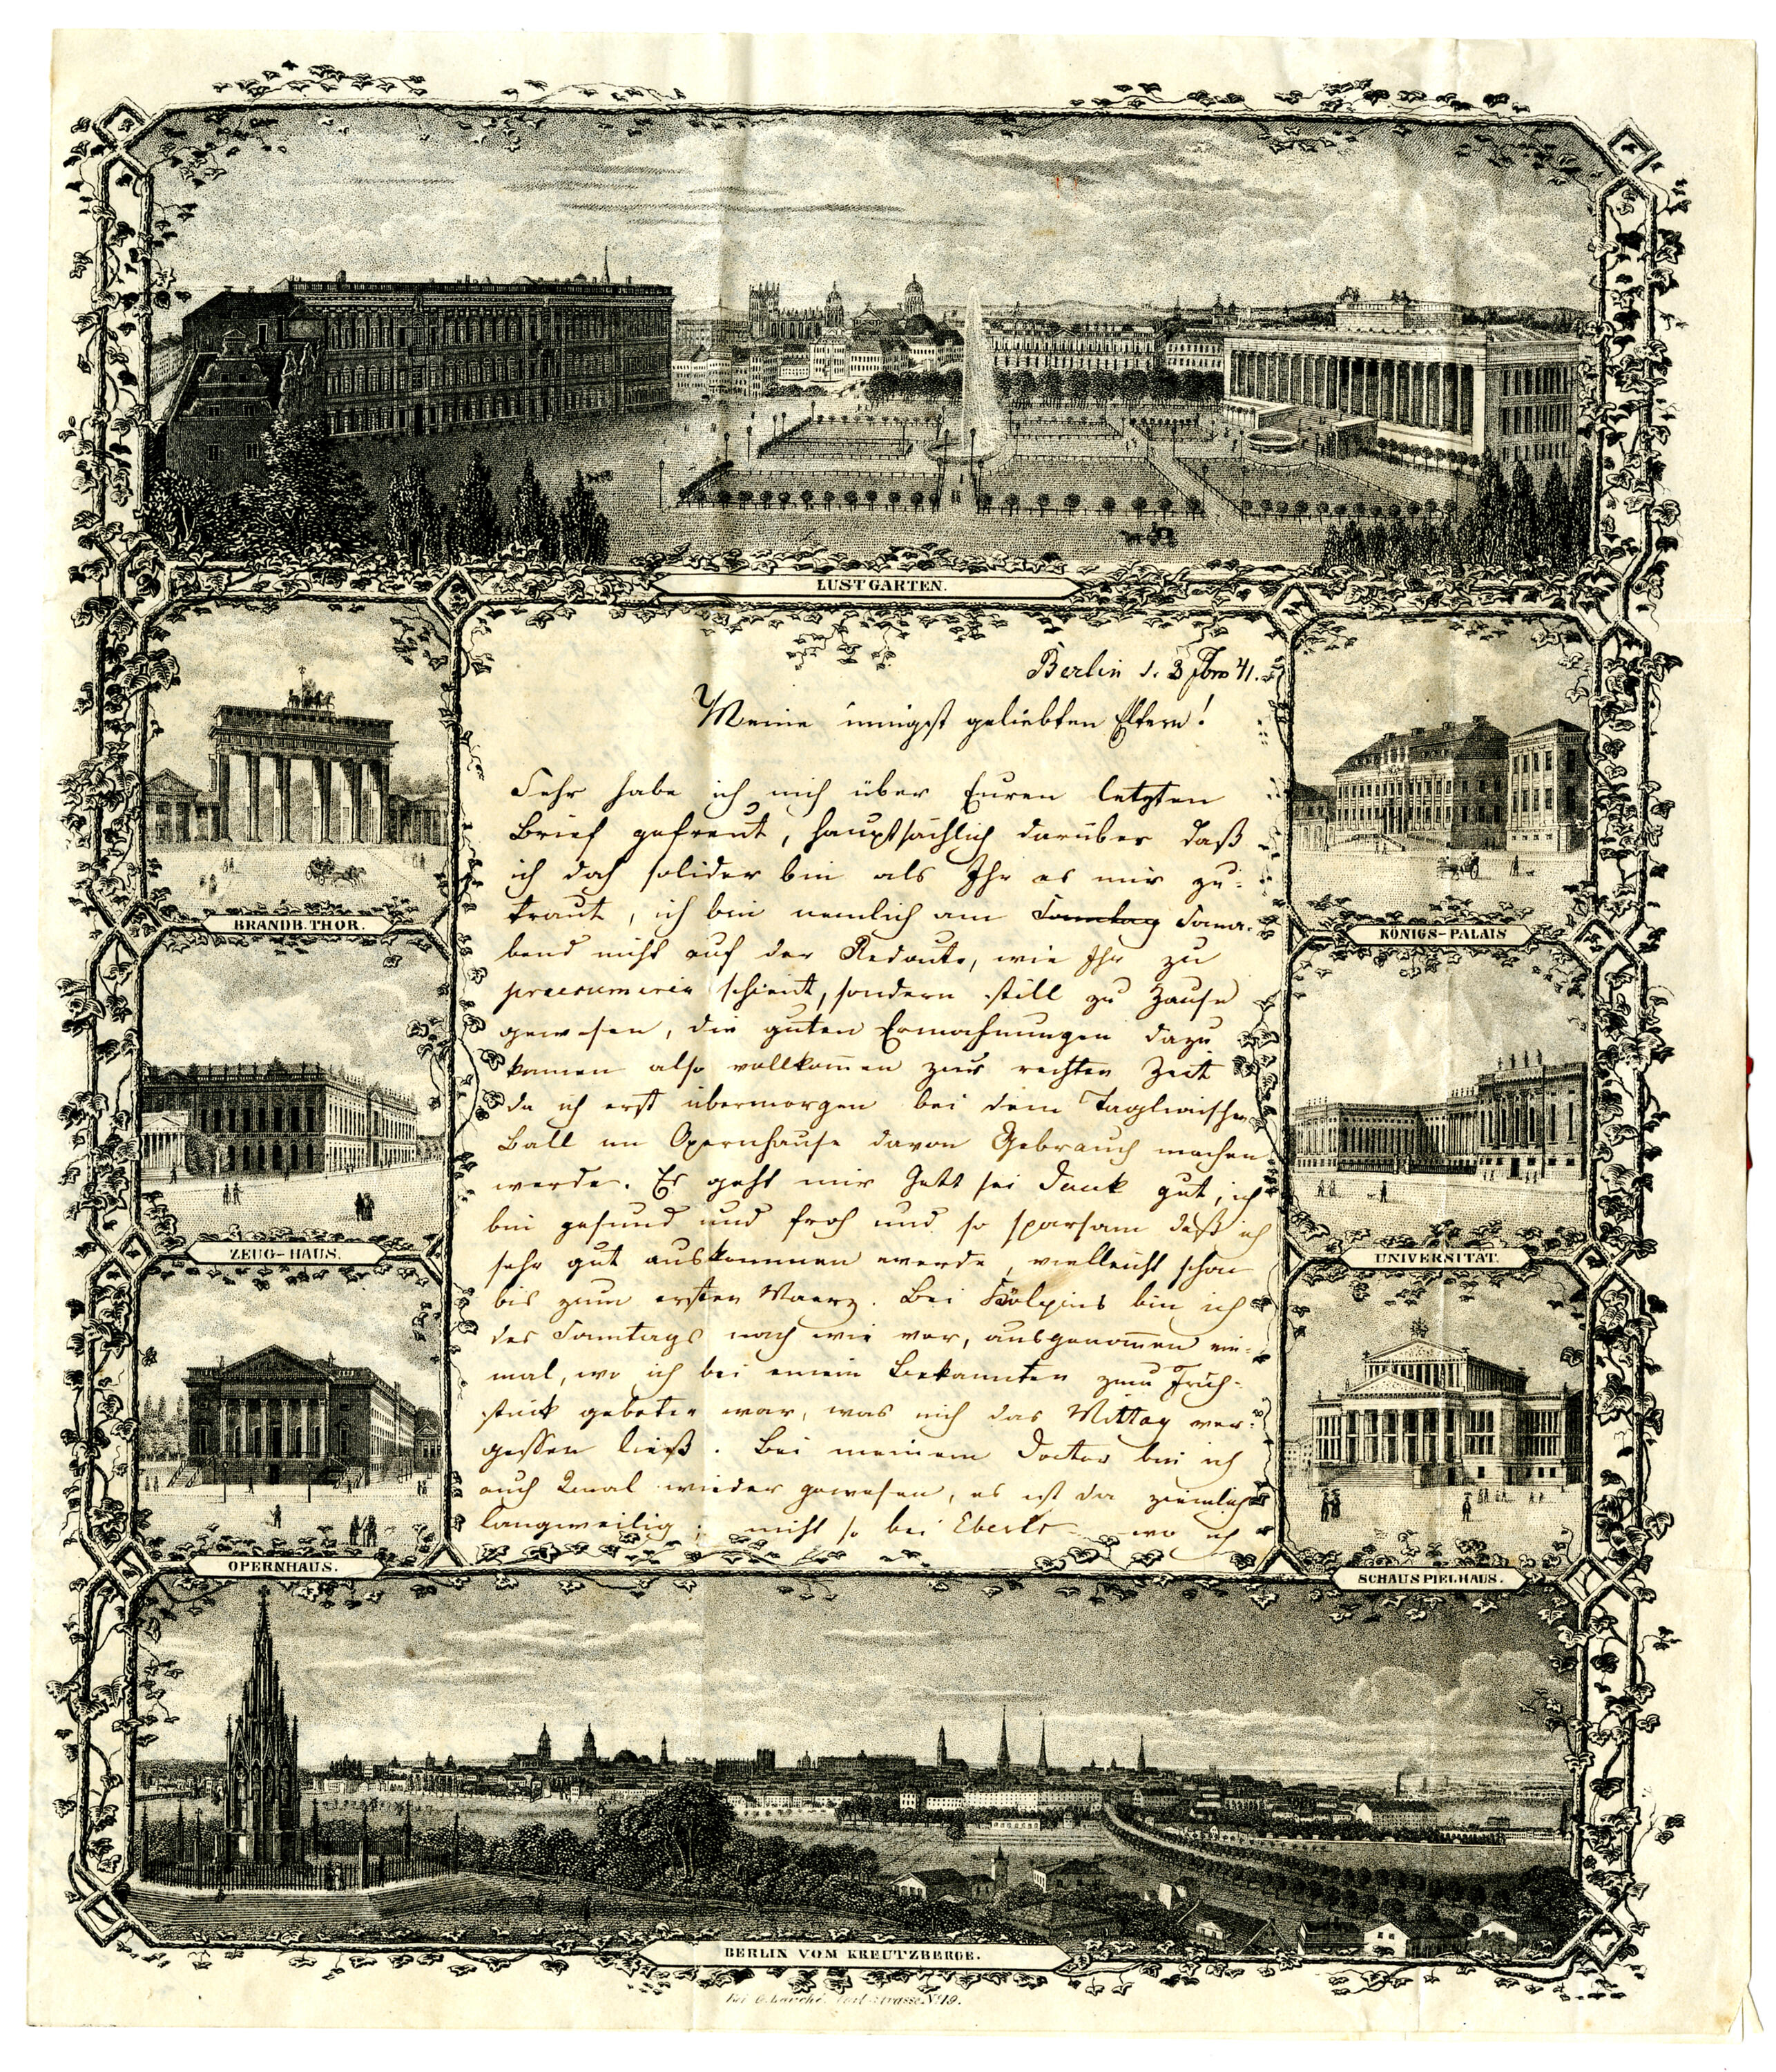 LUSTGARTEN.
Berlin d. 3 Fbro 41.
Meine innigst geliebten Eltern!
Sehr habe ich mich über Euren letzten
Brief gefreut, hauptsächlich darüber daß
ich doch solider bin als Ihr es mir zu-
traut, ich bin nemlich am Sonntag Sonna-
bend nicht auf der Redoute, wie Ihr zu
praesumiren schient, sondern still zu Hause
gewesen, die guten Ermahnungen dazu
kamen also vollkom̄en zur rechten Zeit
da ich erst übermorgen bei dem
Ball im Opernhause davon Gebrauch machen
werde. Es geht mir Gott sei Dank gut, ich
bin gesund und froh und so sparsam daß ich
sehr gut auskommen werde, vielleicht schon
bis zum ersten Maerz. Bei bin ich
des Sonntags nach wie vor, ausgenom̄en ein-
mal, wo ich bei einem Bekannten zum Früh-
stück gebeten war, was mich das Mittag ver-
gessen ließ. Bei meinem Doctor bin ich
auch 2mal wieder gewesen, es ist da ziemlich
langweilig; nicht so bei Eberts wo ich
BRANDB. THOR.
KÖNIGS-PALAIS
ZEUG-HAUS.
UNIVERSITÄT.
OPERNHAUS.
SCHAUSPIELHAUS.
BERLIN VOM KREUTZBERGE.
Bei Strasse No 19.